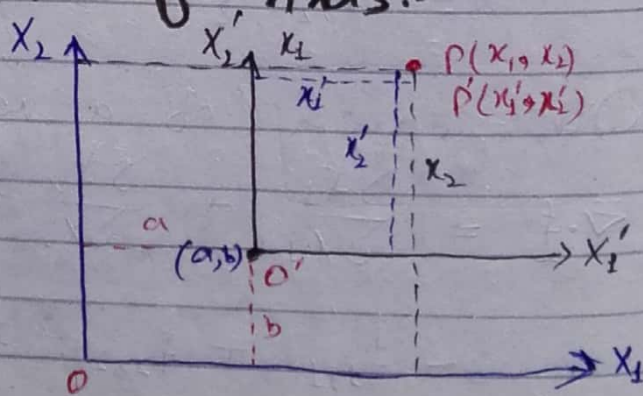 X₂ X₂' x₁ P(x₁, x₂)
x₁' P'(x₁', x₂')
x₂' x₂
a
(a,b) O' X₁'
b
O X₁